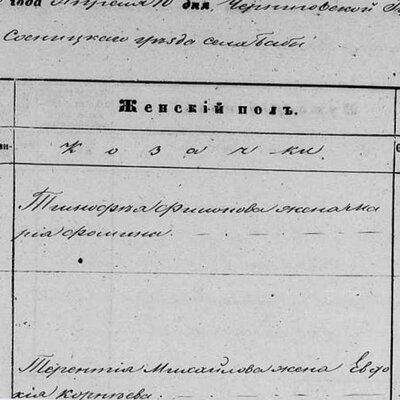 года Апреля 10 дня, Черниговской
Сосницкаго уезда села Бабы
Женскій полъ.
Козачки
Тимофея Филонова жена Ма
рія Фомина.
Терентія Михайлова жена Евдо
хія Корнѣева.